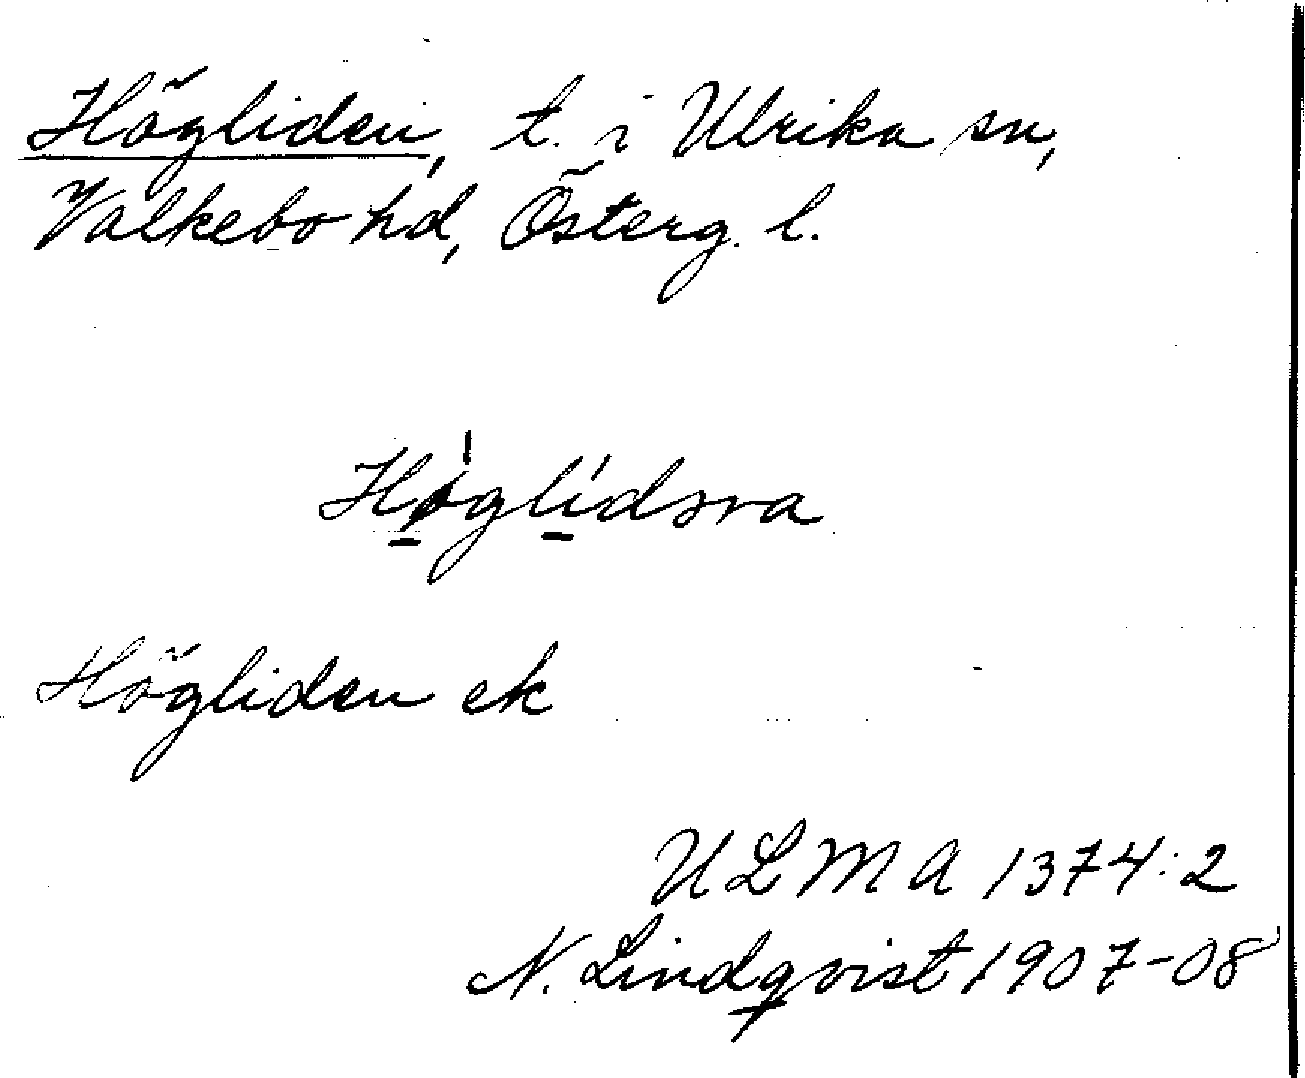 Högliden, t. i Ulrika sn,
Valkebo hd, Österg. l.
Högliden ek
ULMA 1374:2
N. Lindqvist 1907-08